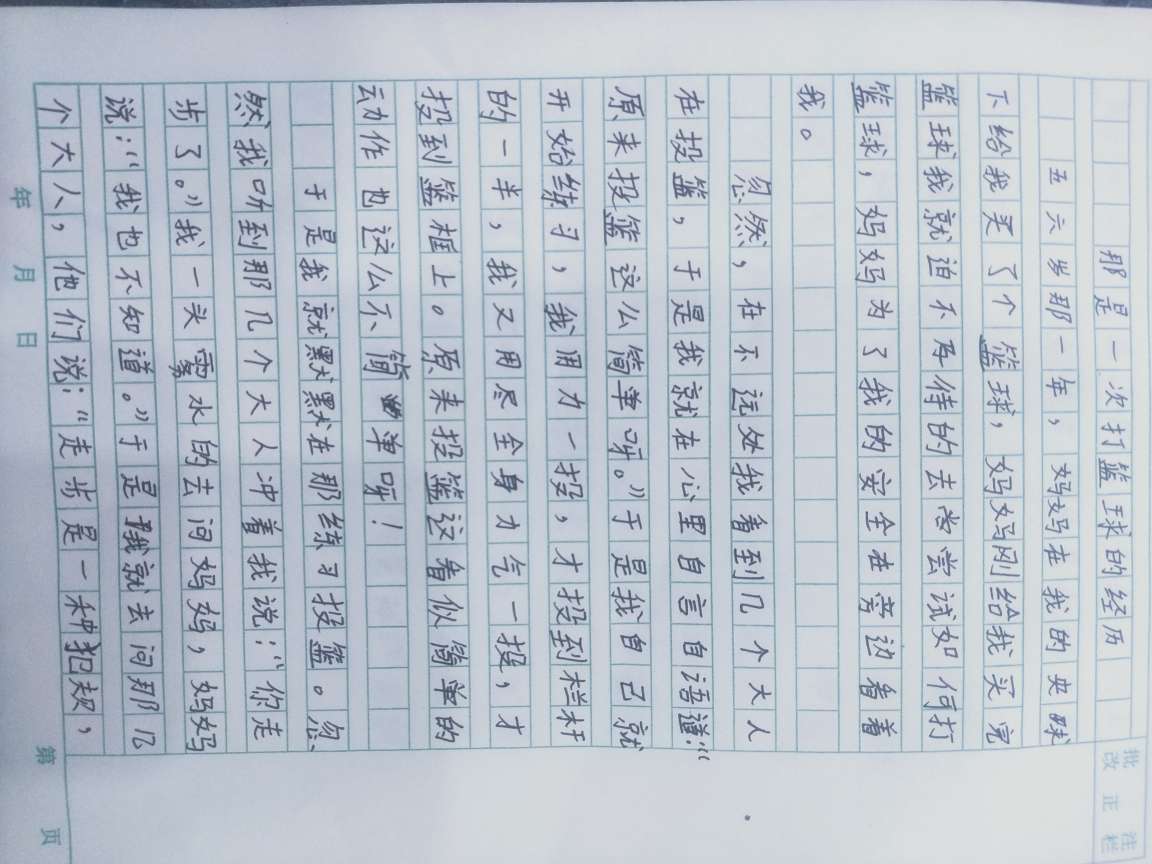 那是一次打篮球的经历
五六岁那一年，妈妈在我的央眯
下给我买了个篮球，妈妈刚给我买完
篮球我就迫不及待的去尝尝试如何打
篮球，妈妈为了我的安全在旁边看着
我。
忽然，在不远处我看到几个大人
在投篮，于是我就在心里自言自语道：“
原来投篮这么简单呀。”于是我自己就
开始练习，我用力一投，才投到栏杆
的一半，我又用尽全身力气一投，才
投到篮框上。原来投篮这看似简单的
动作也这么不简单呀！
于是我就默默在那练习投篮。忽
然我听到那几个大人冲着我说：“你走
步了。”我一头雾水的去问妈妈，妈妈
说：“我也不知道。”于是我就去问那几
个大人，他们说：“走步是一种犯规，
年 月 日
第 页
批改 正栏